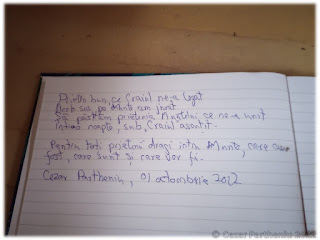 Prieten bun, ce Craiul ne-a legat
sus, pe Munte am jurat
Să păstrăm prietenia Muntelui ce ne-a unit
Într-o noapte, sub, Craiul asortit.
Pentru toți prietenii dragi întru Munte, care au
fost, care sunt și care vor fi.
Cezar Partheniu, 01 octombrie 2022
© Cezar Partheniu 2022